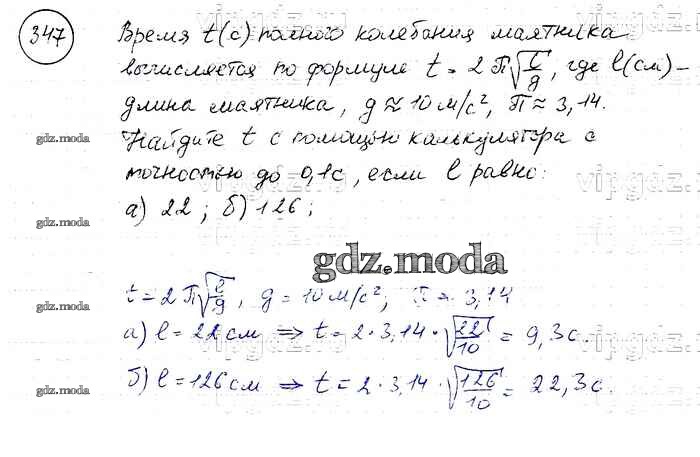 347
Время t(с) полного колебания маятника
вычисляется по формуле t = 2π√(l/g), где l(см) –
длина маятника, g ≈ 10 м/с², π ≈ 3,14.
Найдите t с помощью калькулятора с
точностью до 0,1с, если l равно:
а) 22; б) 126;
gdz.moda
gdz.moda
gdz.moda
t = 2π√(l/g), g = 10 м/с², π = 3,14
а) l = 22 см ⇒ t = 2·3,14·√(22/10) = 9,3с.
б) l = 126 см ⇒ t = 2·3,14·√(126/10) = 22,3с.
gdz.moda
gdz.moda
gdz.moda
vipgdz.ru
vipgdz.ru
vipgdz.ru